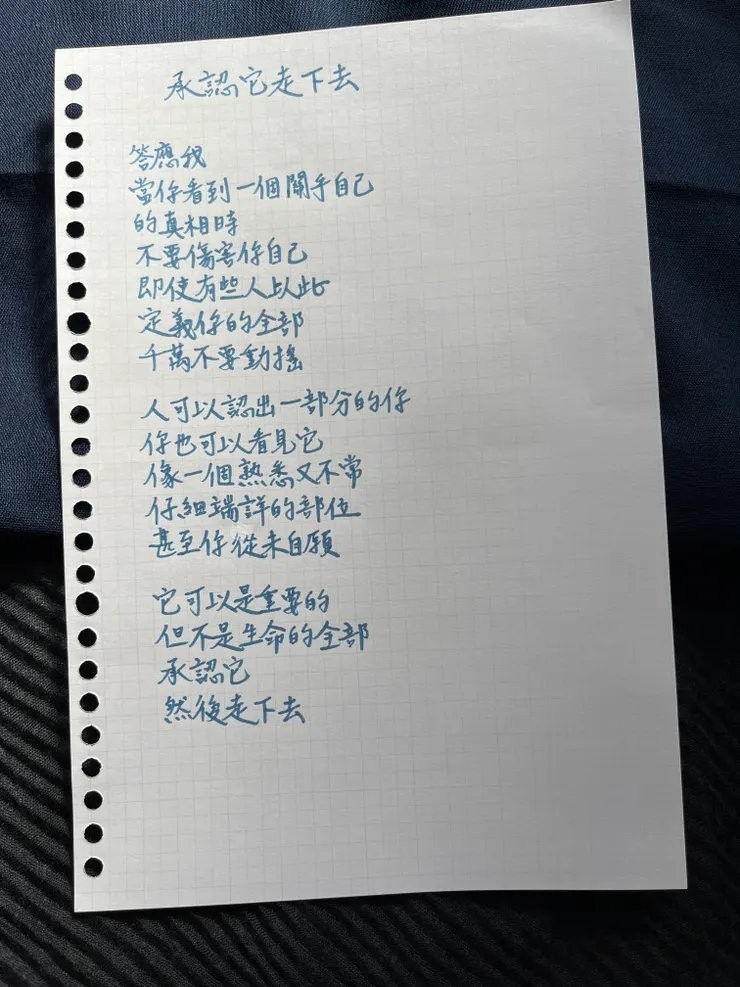 承認它走下去
答應我
當你看到一個關乎自己
的真相時
不要傷害你自己
即使有些人以此
定義你的全部
千萬不要動搖
人可以認出一部分的你
你也可以看見它
像一個熟悉又不常
仔細端詳的部位
甚至你從未自願
它可以是重要的
但不是生命的全部
承認它
然後走下去